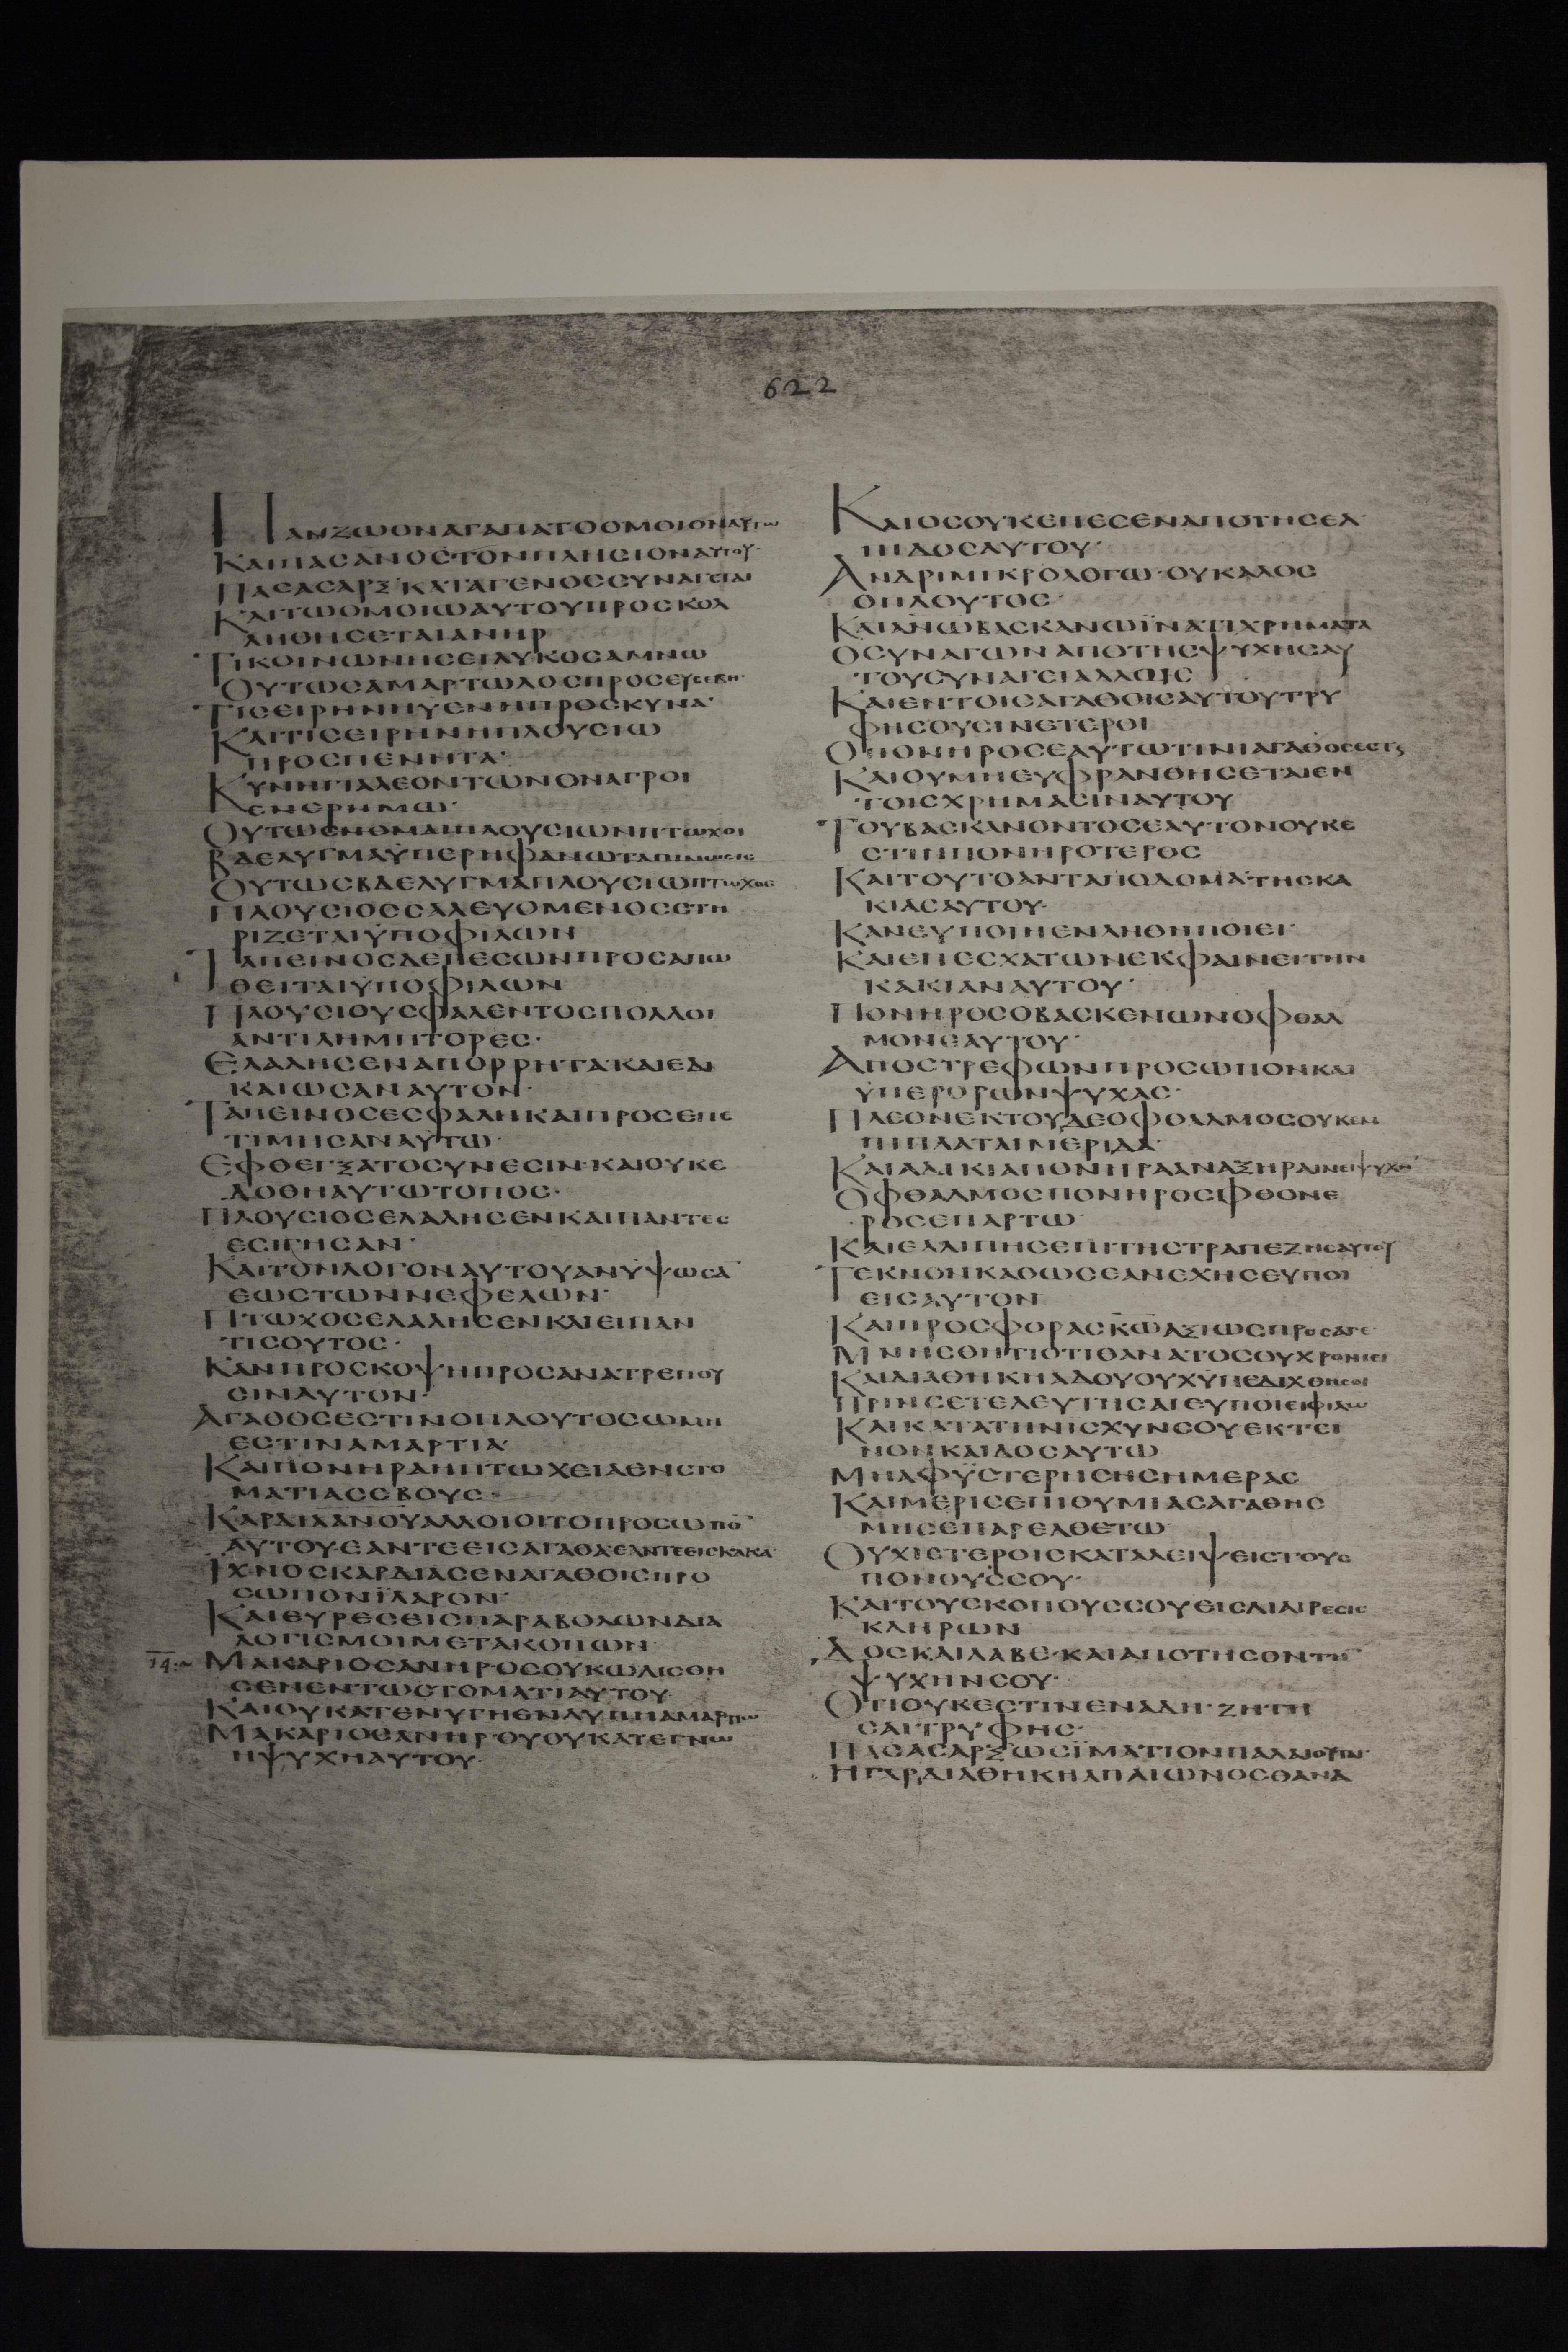 622
ΠΑΝΖΩΟΝΑΓΑΠΑΤΟΟΜΟΙΟΝΑΥΤΩ
ΚΑΙΠΑΣΑΝΟΣΤΟΝΠΛΗΣΙΟΝΑΥΤΟΥ·
ΠΑΣΑΣΑΡΞΚΑΤΑΓΕΝΟΣΣΥΝΑΓΕΤΑΙ
ΚΑΙΤΩΟΜΟΙΩΑΥΤΟΥΠΡΟΣΚΟΛ
ΛΗΘΗΣΕΤΑΙΑΝΗΡ
ΤΙΚΟΙΝΩΝΗΣΕΙΛΥΚΟΣΑΜΝΩ
ΟΥΤΩΣΑΜΑΡΤΩΛΟΣΠΡΟΣΕΥΣΕΒΗ·
ΤΙΣΕΙΡΗΝΗΥΕΝΗΠΡΟΣΚΥΝΑ·
ΚΑΙΤΙΣΕΙΡΗΝΗΠΛΟΥΣΙΩ
ΠΡΟΣΠΕΝΗΤΑ·
ΚΥΝΗΓΙΑΛΕΟΝΤΩΝΟΝΑΓΡΟΙ
ΕΝΕΡΗΜΩ·
ΟΥΤΩΣΝΟΜΑΙΠΛΟΥΣΙΩΝΠΤΩΧΟΙ
ΒΔΕΛΥΓΜΑΫΠΕΡΗΦΑΝΩΤΑΠΙΝΩΣΙΣ
ΟΥΤΩΣΒΔΕΛΥΓΜΑΠΛΟΥΣΙΩΠΤΩΧΟΣ
ΠΛΟΥΣΙΟΣΣΑΛΕΥΟΜΕΝΟΣΣΤΗ
ΡΙΖΕΤΑΙΫΠΟΦΙΛΩΝ
ΤΑΠΕΙΝΟΣΔΕΠΕΣΩΝΠΡΟΣΑΠΩ
ΘΕΙΤΑΙΫΠΟΦΙΛΩΝ
ΠΛΟΥΣΙΟΥΣΦΑΛΕΝΤΟΣΠΟΛΛΟΙ
ΑΝΤΙΛΗΜΠΤΟΡΕΣ·
ΕΛΑΛΗΣΕΝΑΠΟΡΡΗΤΑΚΑΙΕΔΙ
ΚΑΙΩΣΑΝΑΥΤΟΝ·
ΤΑΠΕΙΝΟΣΕΣΦΑΛΗΚΑΙΠΡΟΣΕΠΕ
ΤΙΜΗΣΑΝΑΥΤΩ·
ΕΦΘΕΓΞΑΤΟΣΥΝΕΣΙΝ·ΚΑΙΟΥΚΕ
ΔΟΘΗΑΥΤΩΤΟΠΟΣ·
ΠΛΟΥΣΙΟΣΕΛΑΛΗΣΕΝΚΑΙΠΑΝΤΕΣ
ΕΣΙΓΗΣΑΝ·
ΚΑΙΤΟΝΛΟΓΟΝΑΥΤΟΥΑΝΥΨΩΣΑ
ΕΩΣΤΩΝΝΕΦΕΛΩΝ·
ΠΤΩΧΟΣΕΛΑΛΗΣΕΝΚΑΙΕΙΠΑΝ
ΤΙΣΟΥΤΟΣ·
ΚΑΝΠΡΟΣΚΟΨΗΠΡΟΣΑΝΑΤΡΕΠΟΥ
ΣΙΝΑΥΤΟΝ·
ΑΓΑΘΟΣΕΣΤΙΝΟΠΛΟΥΤΟΣΩΜΗ
ΕΣΤΙΝΑΜΑΡΤΙΑ
ΚΑΙΠΟΝΗΡΑΗΠΤΩΧΕΙΑΕΝΣΤΟ
ΜΑΤΙΑΣΕΒΟΥΣ·
ΚΑΡΔΙΑΑΝΟΥΑΛΛΟΙΟΙΤΟΠΡΟΣΩΠΟ
ΑΥΤΟΥΕΑΝΤΕΕΙΣΑΓΑΘΑ·ΕΑΝΤΕΕΙΣΚΑΚΑ·
ΙΧΝΟΣΚΑΡΔΙΑΣΕΝΑΓΑΘΟΙΣΠΡΟ
ΣΩΠΟΝΪΛΑΡΟΝ·
ΚΑΙΕΥΡΕΣΕΙΣΠΑΡΑΒΟΛΩΝΔΙΑ
ΛΟΓΙΣΜΟΙΜΕΤΑΚΟΠΩΝ·
14· ΜΑΚΑΡΙΟΣΑΝΗΡ·ΟΣΟΥΚΩΛΙΣΘΗ
ΣΕΝΕΝΤΩΣΤΟΜΑΤΙΑΥΤΟΥ
ΚΑΙΟΥΚΑΤΕΝΥΓΗΕΝΛΥΠΗΑΜΑΡΤΙΩ
ΜΑΚΑΡΙΟΣΑΝΗΡ·ΟΥΟΥΚΑΤΕΓΝΩ
ΗΨΥΧΗΑΥΤΟΥ·
ΚΑΙΟΣΟΥΚΕΠΕΣΕΝΑΠΟΤΗΣΕΛ
ΠΙΔΟΣΑΥΤΟΥ·
ΑΝΔΡΙΜΙΚΡΟΛΟΓΩ·ΟΥΚΑΛΟΣ
ΟΠΛΟΥΤΟΣ·
ΚΑΙΑΝΩΒΑΣΚΑΝΩΪΝΑΤΙΧΡΗΜΑΤΑ
ΟΣΥΝΑΓΩΝΑΠΟΤΗΣΨΥΧΗΣΑΥ
ΤΟΥΣΥΝΑΓΕΙΑΛΛΟΙΣ
ΚΑΙΕΝΤΟΙΣΑΓΑΘΟΙΣΑΥΤΟΥΤΡΥ
ΦΗΣΟΥΣΙΝΕΤΕΡΟΙ
ΟΠΟΝΗΡΟΣΕΑΥΤΩΤΙΝΙΑΓΑΘΟΣΕΣΤΑΙ
ΚΑΙΟΥΜΗΕΥΦΡΑΝΘΗΣΕΤΑΙΕΝ
ΤΟΙΣΧΡΗΜΑΣΙΝΑΥΤΟΥ
ΤΟΥΒΑΣΚΑΝΟΝΤΟΣΕΑΥΤΟΝΟΥΚΕ
ΣΤΙΝΠΟΝΗΡΟΤΕΡΟΣ
ΚΑΙΤΟΥΤΟΑΝΤΑΠΟΔΟΜΑΤΗΣΚΑ
ΚΙΑΣΑΥΤΟΥ·
ΚΑΝΕΥΠΟΙΗΕΝΛΗΘΗΠΟΙΕΙ·
ΚΑΙΕΠΕΣΧΑΤΩΝΕΚΦΑΙΝΕΙΤΗΝ
ΚΑΚΙΑΝΑΥΤΟΥ·
ΠΟΝΗΡΟΣΟΒΑΣΚΕΝΩΝΟΦΘΑΛ
ΜΟΝΕΑΥΤΟΥ·
ΑΠΟΣΤΡΕΦΩΝΠΡΟΣΩΠΟΝΚΑΙ
ΫΠΕΡΟΡΩΝΨΥΧΑΣ·
ΠΛΕΟΝΕΚΤΟΥΔΕΟΦΘΑΛΜΟΣΟΥΚΕΜ
ΠΙΠΛΑΤΑΙΜΕΡΙΔΑ·
ΚΑΙΑΔΙΚΙΑΠΟΝΗΡΑΑΝΑΞΗΡΑΙΝΕΙΨΥΧΗ
ΟΦΘΑΛΜΟΣΠΟΝΗΡΟΣΦΘΟΝΕ
ΡΟΣΕΠΑΡΤΩ
ΚΑΙΕΛΛΙΠΗΣΕΠΙΤΗΣΤΡΑΠΕΖΗΣΑΥΤΟΥ
ΤΕΚΝΟΝΚΑΘΩΣΕΑΝΕΧΗΣΕΥΠΟΙ
ΕΙΣΑΥΤΟΝ
ΚΑΙΠΡΟΣΦΟΡΑΣΚΩΑΞΙΩΣΠΡΟΣΑΓΕ
ΜΝΗΣΘΗΤΙΟΤΙΘΑΝΑΤΟΣΟΥΧΡΟΝΙΕΙ
ΚΑΙΔΙΑΘΗΚΗΑΔΟΥΟΥΧΫΠΕΔΙΧΘΗΣΟΙ
ΠΡΙΝΣΕΤΕΛΕΥΤΗΣΑΙΕΥΠΟΙΕΙΦΙΛΩ
ΚΑΙΚΑΤΑΤΗΝΙΣΧΥΝΣΟΥΕΚΤΕΙ
ΝΟΝΚΑΙΔΟΣΑΥΤΩ
ΜΗΑΦΫΣΤΕΡΗΣΗΣΗΜΕΡΑΣ
ΚΑΙΜΕΡΙΣΕΠΙΘΥΜΙΑΣΑΓΑΘΗΣ
ΜΗΣΕΠΑΡΕΛΘΕΤΩ
ΟΥΧΙΕΤΕΡΟΙΣΚΑΤΑΛΕΙΨΕΙΣΤΟΥΣ
ΠΟΝΟΥΣΣΟΥ·
ΚΑΙΤΟΥΣΚΟΠΟΥΣΣΟΥΕΙΣΔΙΑΙΡΕΣΙΣ
ΚΛΗΡΩΝ
ΔΟΣΚΑΙΛΑΒΕ·ΚΑΙΑΠΟΤΗΣΟΝΤΗ
ΨΥΧΗΝΣΟΥ·
ΟΤΙΟΥΚΕΣΤΙΝΕΝΑΔΗ·ΖΗΤΗ
ΣΑΙΤΡΥΦΗΣ·
ΠΑΣΑΣΑΡΞΩΣΪΜΑΤΙΟΝΠΑΛΑΙΟΥΤΑΙ·
ΗΓΑΡΔΙΑΘΗΚΗΑΠΑΙΩΝΟΣΘΑΝΑ